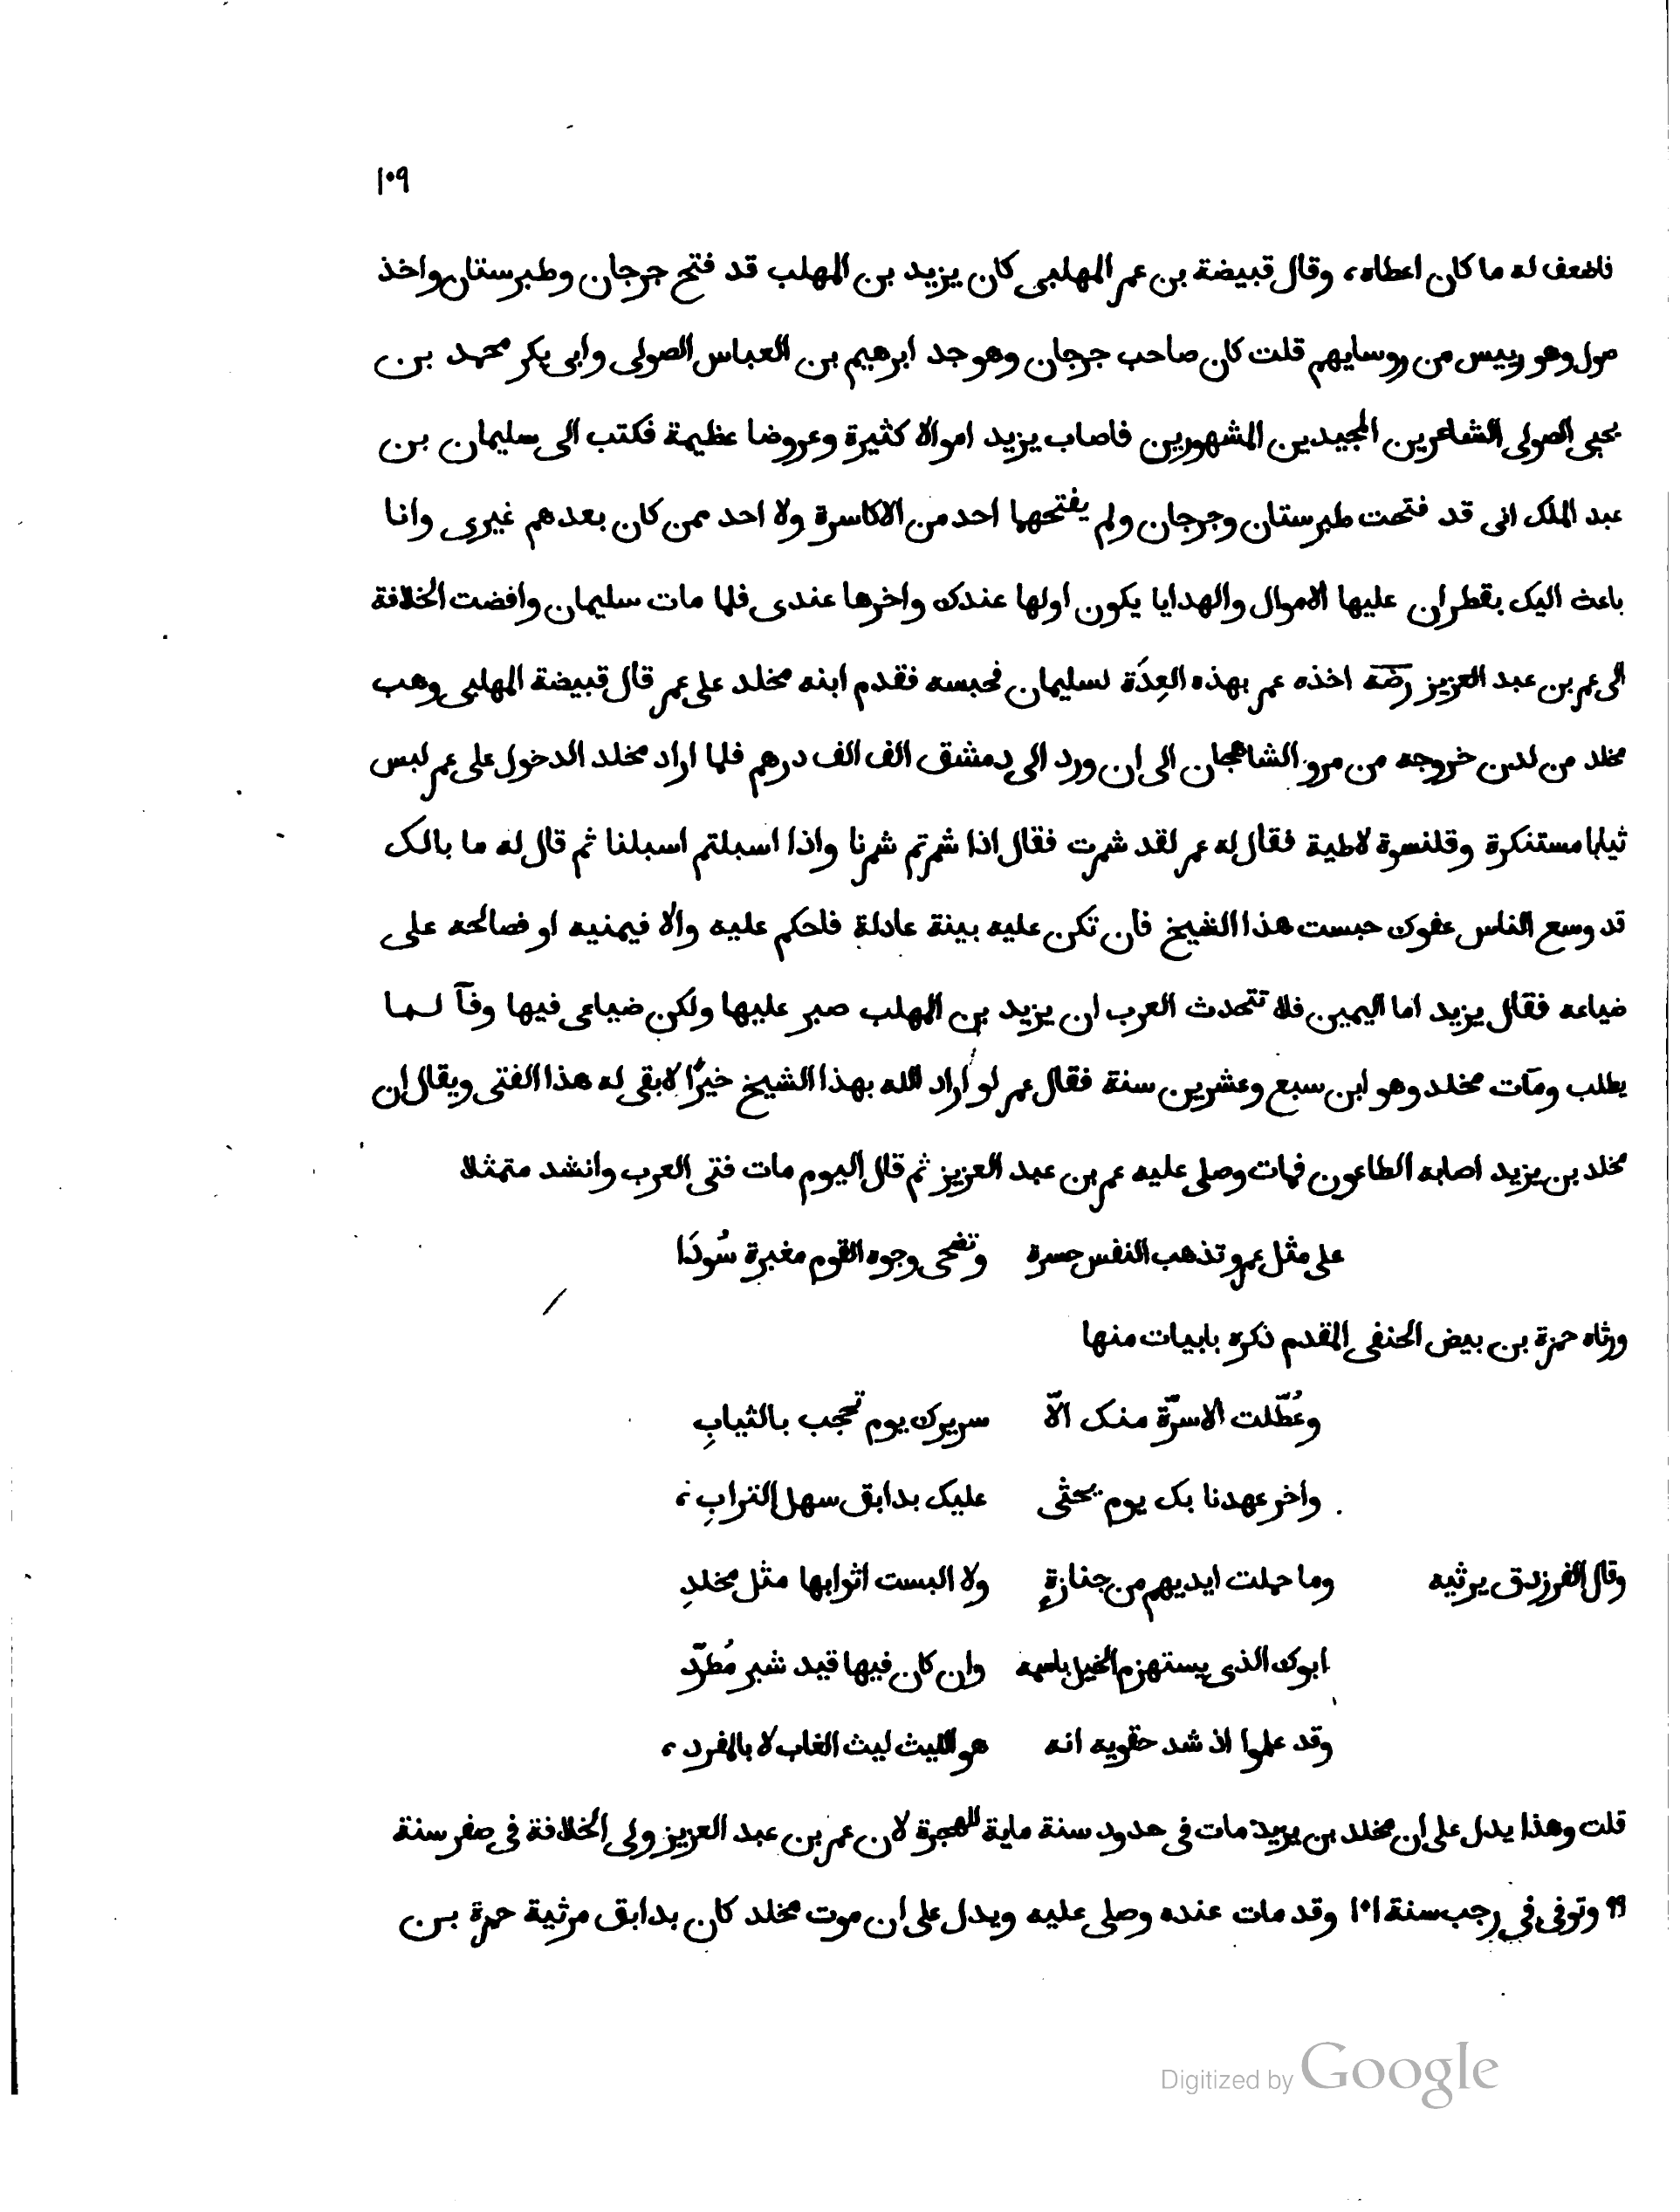 ١٠٩
فاضعف له ما كان اعطاه، وقال قبيضة بن عمر المهلبى كان يزيد بن المهلب قد فتح جرجان وطبرستان واخذ
صول وهو رييس من روسايهم قلت كان صاحب جرجان وهو جد ابرهيم بن العباس الصولى وابى بكر محمد بن
يحيى الصولى الشاعرين المجيدين المشهورين فاصاب يزيد اموالا كثيرة وعروضا عظيمة فكتب الى سليمان بن
عبد الملك انى قد فتحت طبرستان وجرجان ولم يفتحهما احد من الاكاسرة ولا احد ممن كان بعدهم غيرى وانا
باعث اليك بقطران عليها الاموال والهدايا يكون اولها عندك واخرها عندى فلما مات سليمان وافضت الخلافة
الى عمر بن عبد العزيز رضّه اخذه عمر بهذه العِدَة لسليمان فحبسه فقدم ابنه مخلد على عمر قال قبيضة المهلبى وهب
مخلد من لدن خروجه من مرو الشاهجان الى ان ورد الى دمشق الف الف درهم فلما اراد مخلد الدخول على عمر لبس
ثيابا مستنكرة وقلنسوة لاطية فقال له عمر لقد شمرت فقال اذا شمرتم شمرنا واذا اسبلتم اسبلنا ثم قال له ما بالك
قد وسع الناس عفوك حبست هذا الشيخ فان تكن عليه بينة عادلة فاحكم عليه والا فيمنيه او فصالحه على
ضياعه فقال يزيد اما اليمين فلا تتحدث العرب ان يزيد بن المهلب صبر عليها ولكن ضياعى فيها وفآ لما
يطلب ومآت مخلد وهو ابن سبع وعشرين سنة فقال عمر لو اراد الله بهذا الشيخ خيرًا لابقى له هذا الفتى ويقال ان
مخلد بن يزيد اصابه الطاعون فمات وصلى عليه عمر بن عبد العزيز ثم قال اليوم مات فتى العرب وانشد متمثلا
على مثل عمرو تذهب النفس حسرة وتضحى وجوه القوم مغبرة سُودَا
ورثاه حمزة بن بيض الحنفى المقدم ذكره بابيات منها
وعُطّلت الاسرّة منك الّا سريرك يوم تحجب بالثيابِ
واخر عهدنا بك يوم يحثى عليك بدابق سهل الترابِ،
وقال الفرزدق يرثيه وما حملت ايديهم من جنازةٍ ولا البست اثوابها مثل مخلدِ
ابوك الذى يستهزم الخيل باسمه وان كان فيها قيد شبر مُطرّد
وقد علموا اذ شد حقويه انه هو الليث ليث الغاب لا بالمفرد،
قلت وهذا يدل على ان مخلد بن يزيد مات فى حدود سنة ماية للهجرة لان عمر بن عبد العزيز ولى الخلافة فى صفر سنة
٩٩ وتوفى فى رجب سنة ١٠١ وقد مات عنده وصلى عليه ويدل على ان موت مخلد كان بدابق مرثية حمزة بن
Digitized by Google